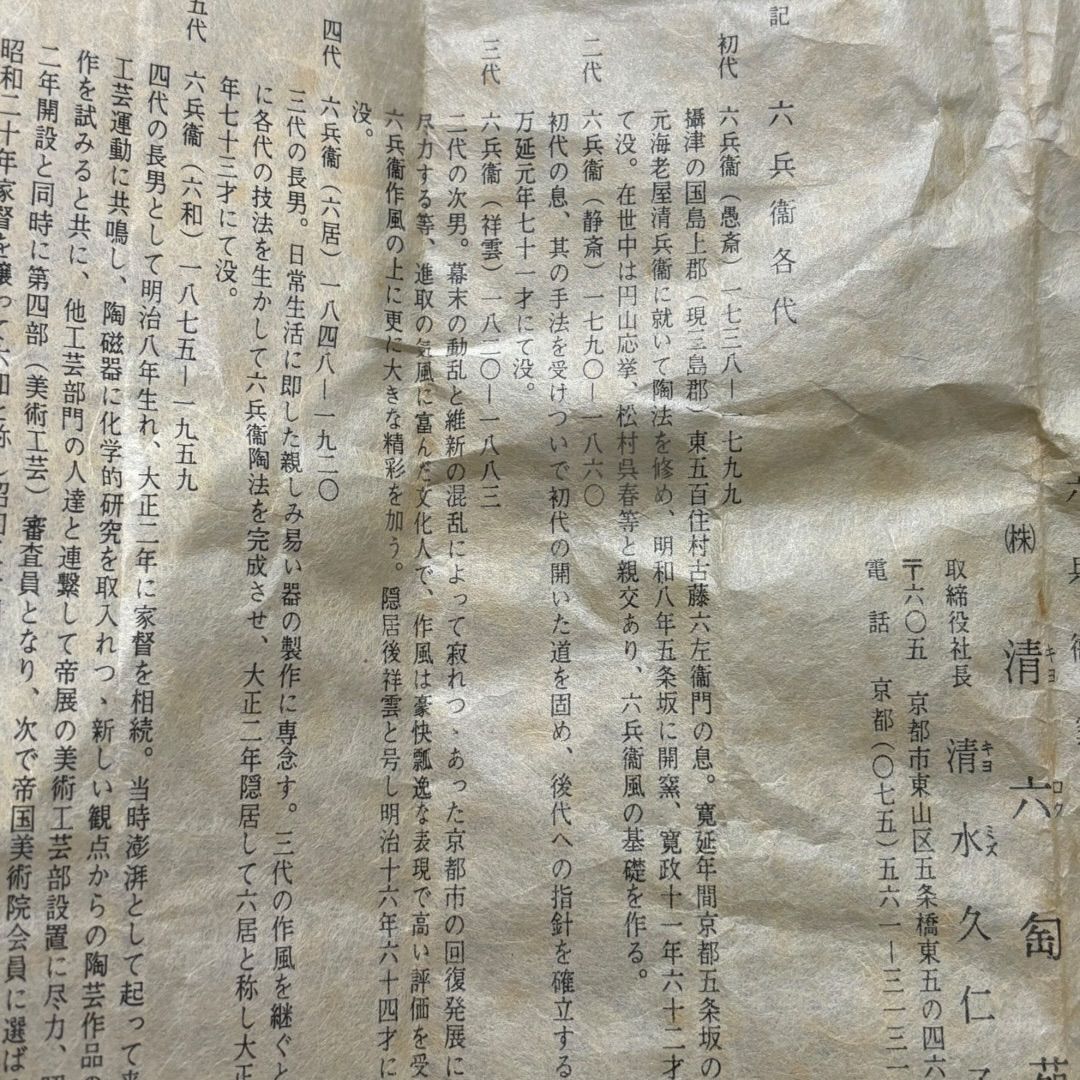 六兵衞
(株)清六匋苑
キヨロク
取締役社長 清水久仁
キヨミズ
〒六〇五 京都市東山区五条橋東五の四六
電話 京都(〇七五)五六一ー三一三一
記
六兵衞各代
初代 六兵衞(愚斎)一七三八ー一七九九
攝津の国島上郡(現三島郡)東五百住村古藤六左衞門の息。寛延年間京都五条坂の
元海老屋清兵衞に就いて陶法を修め、明和八年五条坂に開窯、寛政十一年六十二才
て没。在世中は円山応挙、松村呉春等と親交あり、六兵衞風の基礎を作る。
二代 六兵衞(静斎)一七九〇ー一八六〇
初代の息、其の手法を受けついで初代の開いた道を固め、後代への指針を確立する
万延元年七十一才にて没。
三代 六兵衞(祥雲)一八二〇ー一八八三
二代の次男。幕末の動乱と維新の混乱によって寂れつゝあった京都市の回復発展に
尽力する等、進取の気風に富んだ文化人で、作風は豪快瓢逸な表現で高い評価を受
六兵衞作風の上に更に大きな精彩を加う。隠居後祥雲と号し明治十六年六十四才に
没。
四代 六兵衞(六居)一八四八ー一九二〇
三代の長男。日常生活に即した親しみ易い器の製作に専念す。三代の作風を継ぐと
に各代の技法を生かして六兵衞陶法を完成させ、大正二年隠居して六居と称し大正
年七十三才にて没。
五代 六兵衞(六和)一八七五ー一九五九
四代の長男として明治八年生れ、大正二年に家督を相続。当時澎湃として起って来
工芸運動に共鳴し、陶磁器に化学的研究を取入れつゝ新しい観点からの陶芸作品の
作を試みると共に、他工芸部門の人達と連繫して帝展の美術工芸部設置に尽力、昭
二年開設と同時に第四部(美術工芸)審査員となり、次で帝国美術院会員に選ば
昭和二十年家督を譲って六和と称し昭和